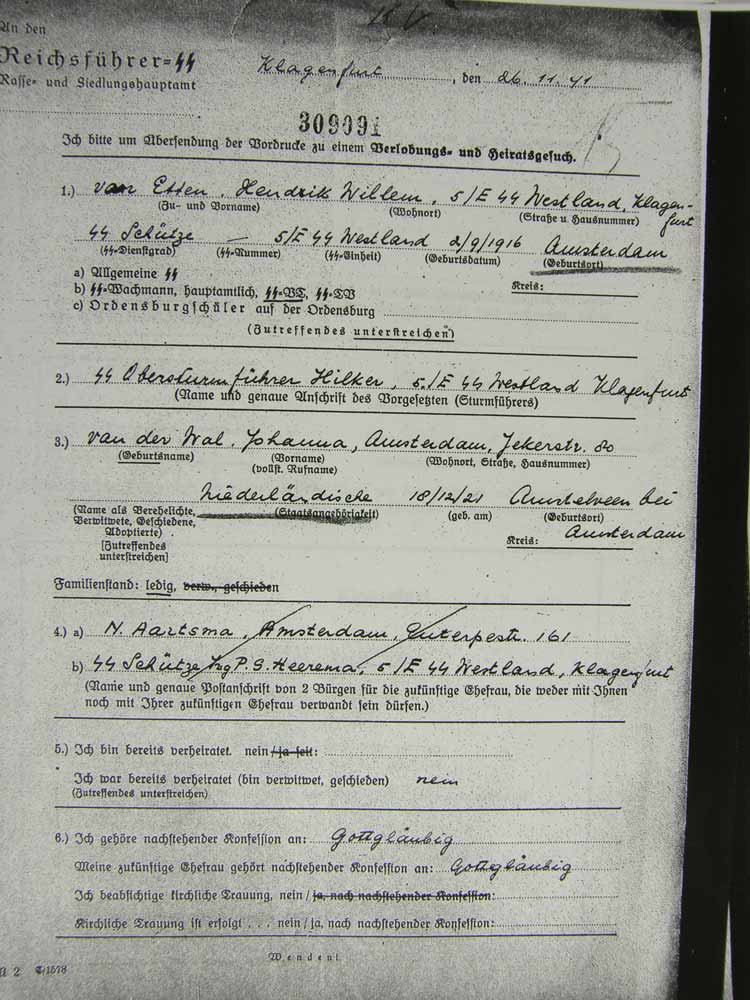 R V.
An den
Reichsführer-SS
Rasse- und Siedlungshauptamt
Klagenfurt, den 26.11.41
309091
15
Ich bitte um Übersendung der Vordrucke zu einem Verlobungs- und Heiratsgesuch.
1.) van Etten, Hendrik Willem, 5/E SS Westland, Klagen-
furt
(Zu- und Vorname) (Wohnort) (Straße u. Hausnummer)
SS Schütze — 5/E SS Westland 2/9/1916 Amsterdam
(SS-Dienstgrad) (SS-Nummer) (SS-Einheit) (Geburtsdatum) (Geburtsort)
a) Allgemeine SS
Kreis:
b) SS-Wachmann, hauptamtlich, SS-VT, SS-TV
c) Ordensburgschüler auf der Ordensburg
(Zutreffendes unterstreichen)
2.) SS Obersturmführer Hilker, 5./E SS Westland Klagenfurt
(Name und genaue Anschrift des Vorgesetzten (Sturmführers)
3.) van der Wal. Johanna, Amsterdam, Jekerstr. 80
(Geburtsname) (Vorname) (Wohnort, Straße, Hausnummer)
(vollst. Rufname)
Niederländische 18/12/21 Amstelveen bei
Amsterdam
(Name als Verehelichte, (Staatsangehörigkeit) (geb. am) (Geburtsort)
Verwitwete, Geschiedene,
Adoptierte) Kreis:
[Zutreffendes
unterstreichen]
Familienstand: ledig, verw., geschieden
4.) a) N. Aartsma, Amsterdam, Euterpestr. 161
b) SS Schütze P.S. Heerema, 5/E SS Westland, Klagenfurt
(Name und genaue Postanschrift von 2 Bürgen für die zukünftige Ehefrau, die weder mit Ihnen
noch mit Ihrer zukünftigen Ehefrau verwandt sein dürfen.)
5.) Ich bin bereits verheiratet. nein / ja seit:
Ich war bereits verheiratet (bin verwitwet, geschieden) nein
(Zutreffendes unterstreichen)
6.) Ich gehöre nachstehender Konfession an: Gottgläubig
Meine zukünftige Ehefrau gehört nachstehender Konfession an: Gottgläubig
Ich beabsichtige kirchliche Trauung, nein / ja, nach nachstehender Konfession:
Kirchliche Trauung ist erfolgt . . . nein / ja, nach nachstehender Konfession:
Wenden!
A 2 C/1578